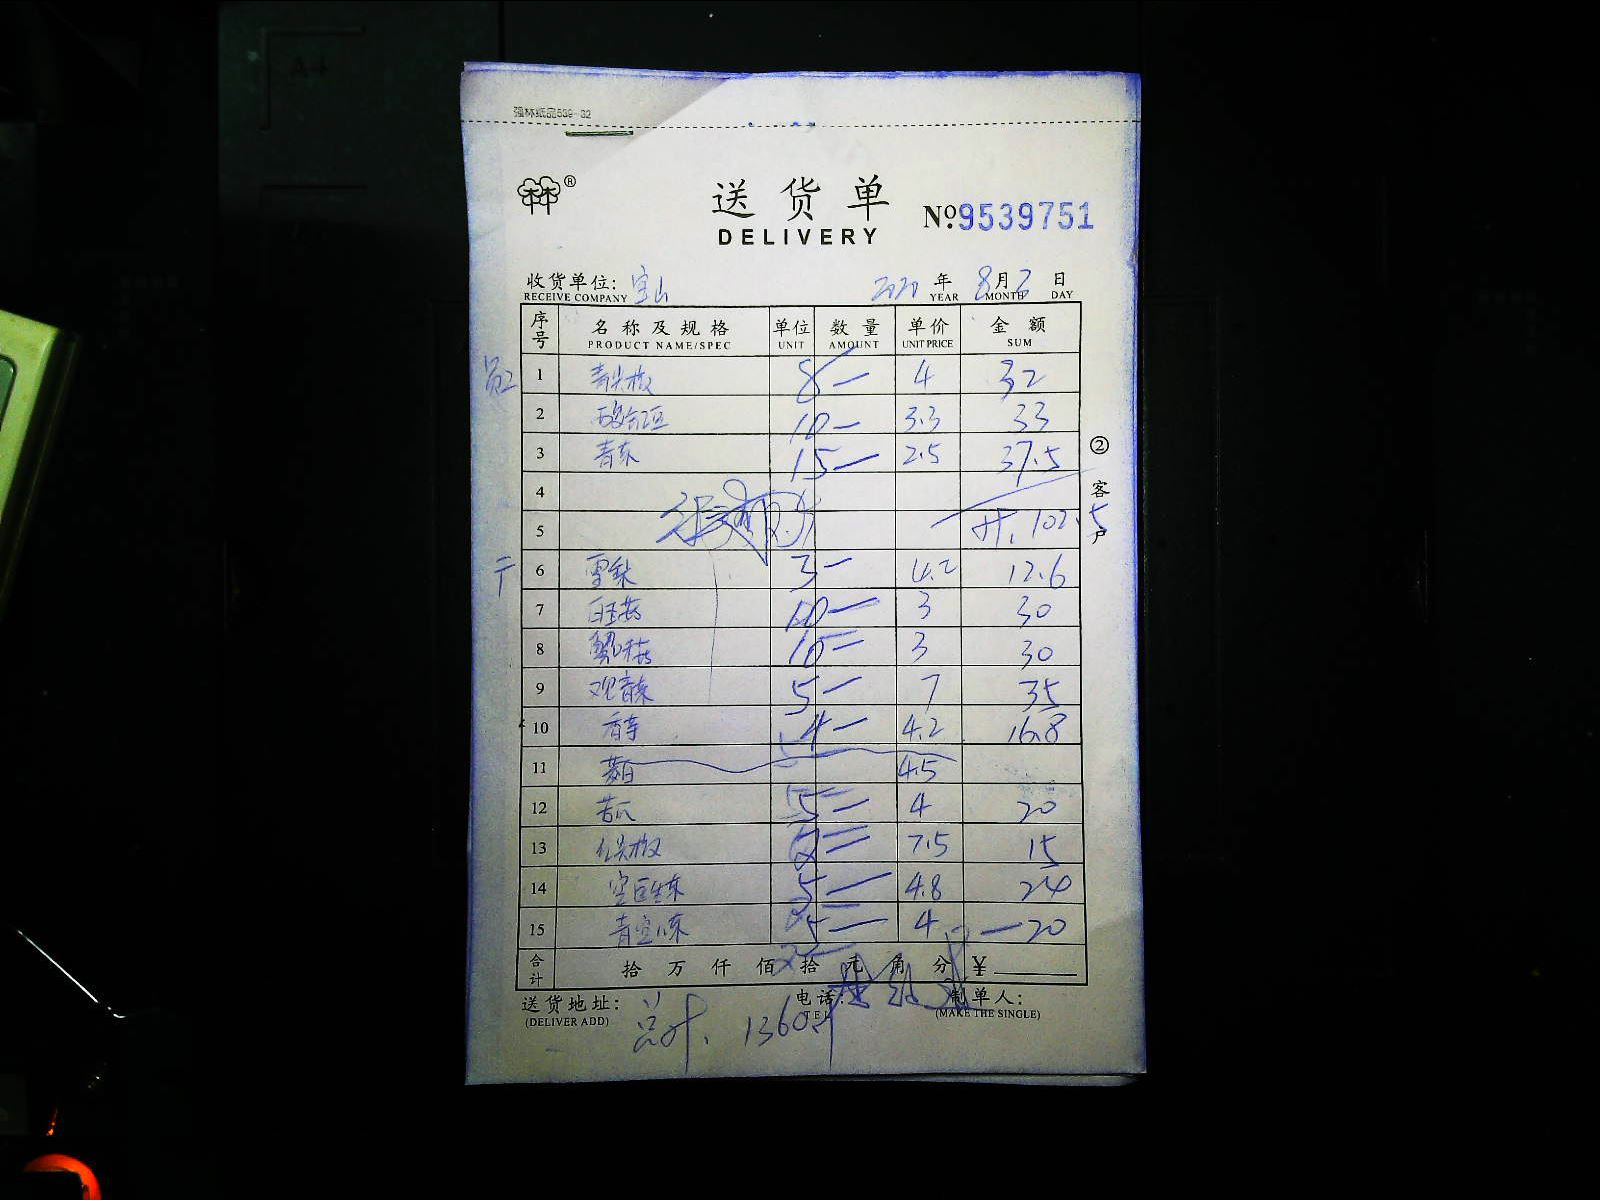 强林纸品539-32
林林®
送货单
DELIVERY
№9539751
收货单位: 宝山 2020年8月2日
RECEIVE COMPANY YEAR MONTH DAY
序号 名称及规格 单位 数量 单价 金额
PRODUCT NAME/SPEC UNIT AMOUNT UNIT PRICE SUM
1 青尖椒 8— 4 32
2 10— 3.3 33
3 青东 15— 2.5 37.5
4
5 计. 102.5
6 雪梨 3— 4.2 12.6
7 白玉菇 10— 3 30
8 蟹味菇 10— 3 30
9 观音菜 5— 7 35
10 香芋 4— 4.2 16.8
11 茭白 4.5
12 苦瓜 5— 4 20
13 2— 7.5 15
14 5— 4.8 24
15 5— 4 —20
合计 拾万仟佰拾元角分 ¥
送货地址: 电话: 制单人:
(DELIVER ADD) TEL (MAKE THE SINGLE)
总计.
② 客户